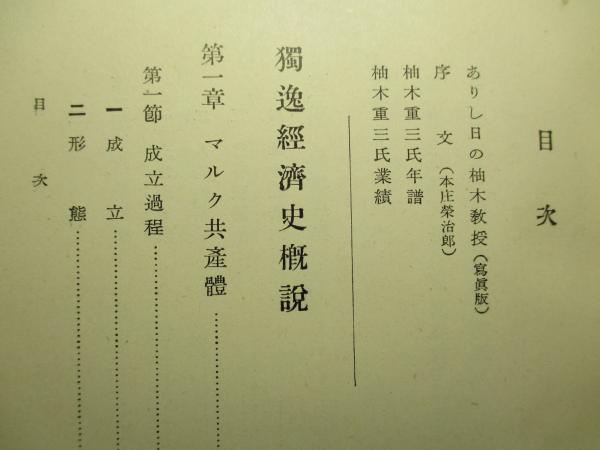 目次
ありし日の柚木教授（寫眞版）
序文（本庄榮治郎）
柚木重三氏年譜
柚木重三氏業績
獨逸經濟史槪說
第一章 マルク共產體……………
第一節 成立過程……………
一 成立……………
二 形態……………
目次